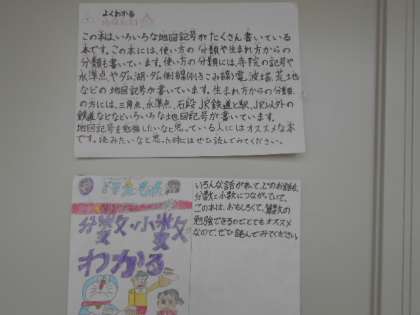 よくわかる
この本は、いろいろな地図記号がたくさん書いている
本です。この本には、使い方の分類や生まれ方からの
分類も書いています。使い方の分類には、寺院の記号や
水準点、やダム、湖・
などの地図記号が書いています。生まれ方からの分類、
の方には、三角点、水準点、石段、JR鉄道と駅、JR以外の
鉄道などなどいろいろな地図記号が書いています。
地図記号を勉強したいなと思っている人にはオススメな本
です。読みたいなと思った時にはぜひ読んでみてください。
分数・小数
わかる
いろんな話があって、どのお話も、
分数と小数につながっていて、
この本は、おもしろくて、算数の
勉強できるのでとてもオススメ
なので、ぜひ読んでみてください。